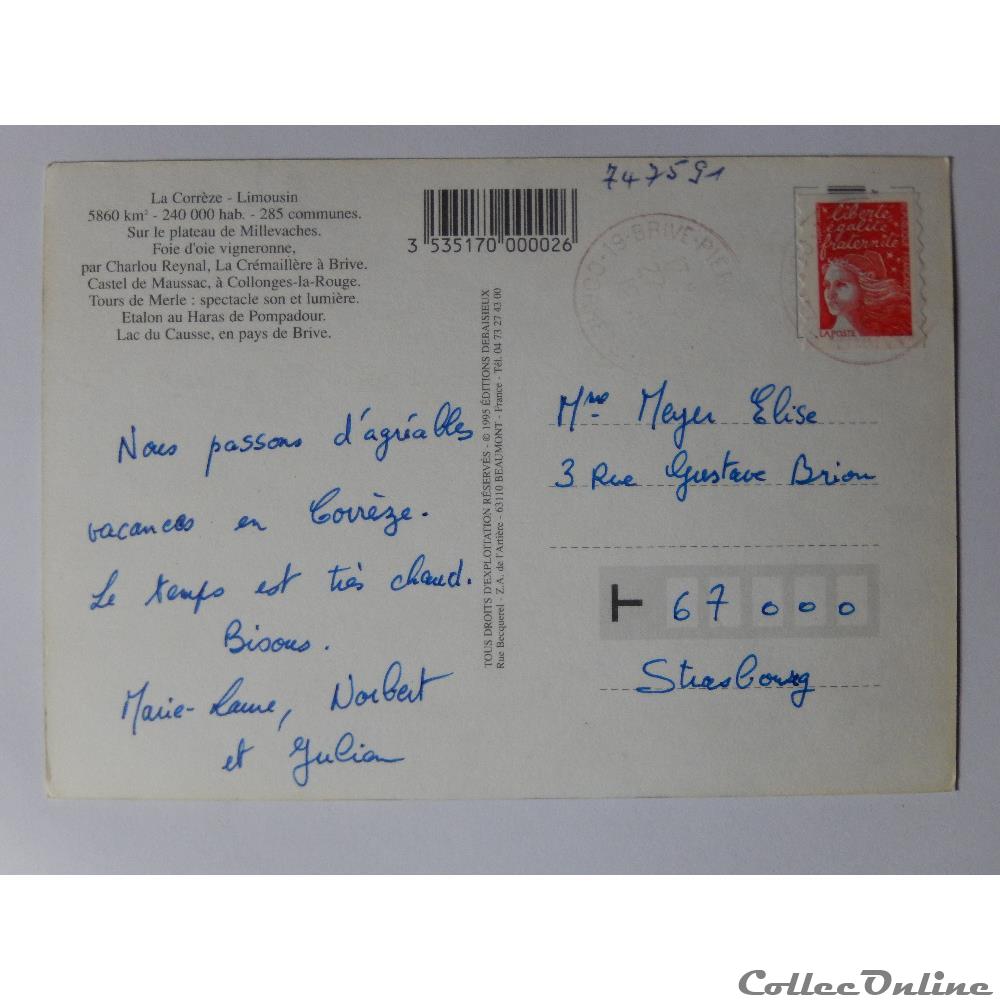 La Corrèze - Limousin
5860 km² - 240 000 hab. - 285 communes.
Sur le plateau de Millevaches.
Foie d'oie vigneronne,
par Charlou Reynal, La Crémaillère à Brive.
Castel de Maussac, à Collonges-la-Rouge.
Tours de Merle : spectacle son et lumière.
Etalon au Haras de Pompadour.
Lac du Causse, en pays de Brive.
3 535170 000026
747591
19-BRIVE-PIE
liberté
égalité
fraternité
LA POSTE
TOUS DROITS D'EXPLOITATION RÉSERVÉS - © 1995 ÉDITIONS DEBAISIEUX
Rue Becquerel - Z.A. de l'Artière - 63110 BEAUMONT - France - Tél. 04 73 27 43 00
Nous passons d'agréables
vacances en Corrèze.
Le temps est très chaud.
Bisous.
Marie-Laure, Norbert
et Julian
Mme Meyer Elise
3 Rue Gustave Brion
T 67000
Strasbourg
CollecOnline